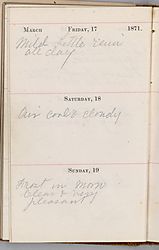 MARCH FRIDAY, 17 1871.
Mild little rain
all day
SATURDAY, 18
Air cool & cloudy
SUNDAY, 19
Frost in morn
Clear & very
pleasant